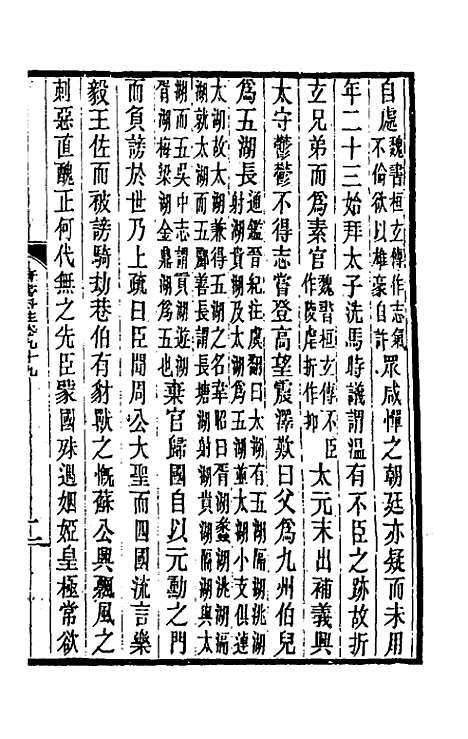 自處魏書桓玄傳作志氣
不倫欲以雄豪自許眾咸憚之朝廷亦疑而未用
年二十三始拜太子洗馬時議謂溫有不臣之跡故折
玄兄弟而為素官魏書桓玄傳不臣
作陵虐折作抑太元末出補義興
太守鬱鬱不得志嘗登高望震澤歎曰父為九州伯兒
為五湖長通鑑晉紀注虞翻曰太湖有五湖隔湖洮湖
射湖貴湖及太湖為五湖並太湖小支俱連
太湖故太湖兼得五湖之名韋昭曰胥湖蠡湖洮湖滆
湖就太湖而五酈善長謂長塘湖射湖貴湖滆湖與太
湖而五吳中志謂貢湖游湖
胥湖梅梁湖金鼎湖為五也棄官歸國自以元勳之門
而負謗於世乃上疏曰臣聞周公大聖而四國流言樂
毅王佐而被謗騎劫巷伯有豺獸之慨蘇公興飄風之
刺惡直醜正何代無之先臣蒙國殊遇姻婭皇極常欲
晉書斠注卷九十九